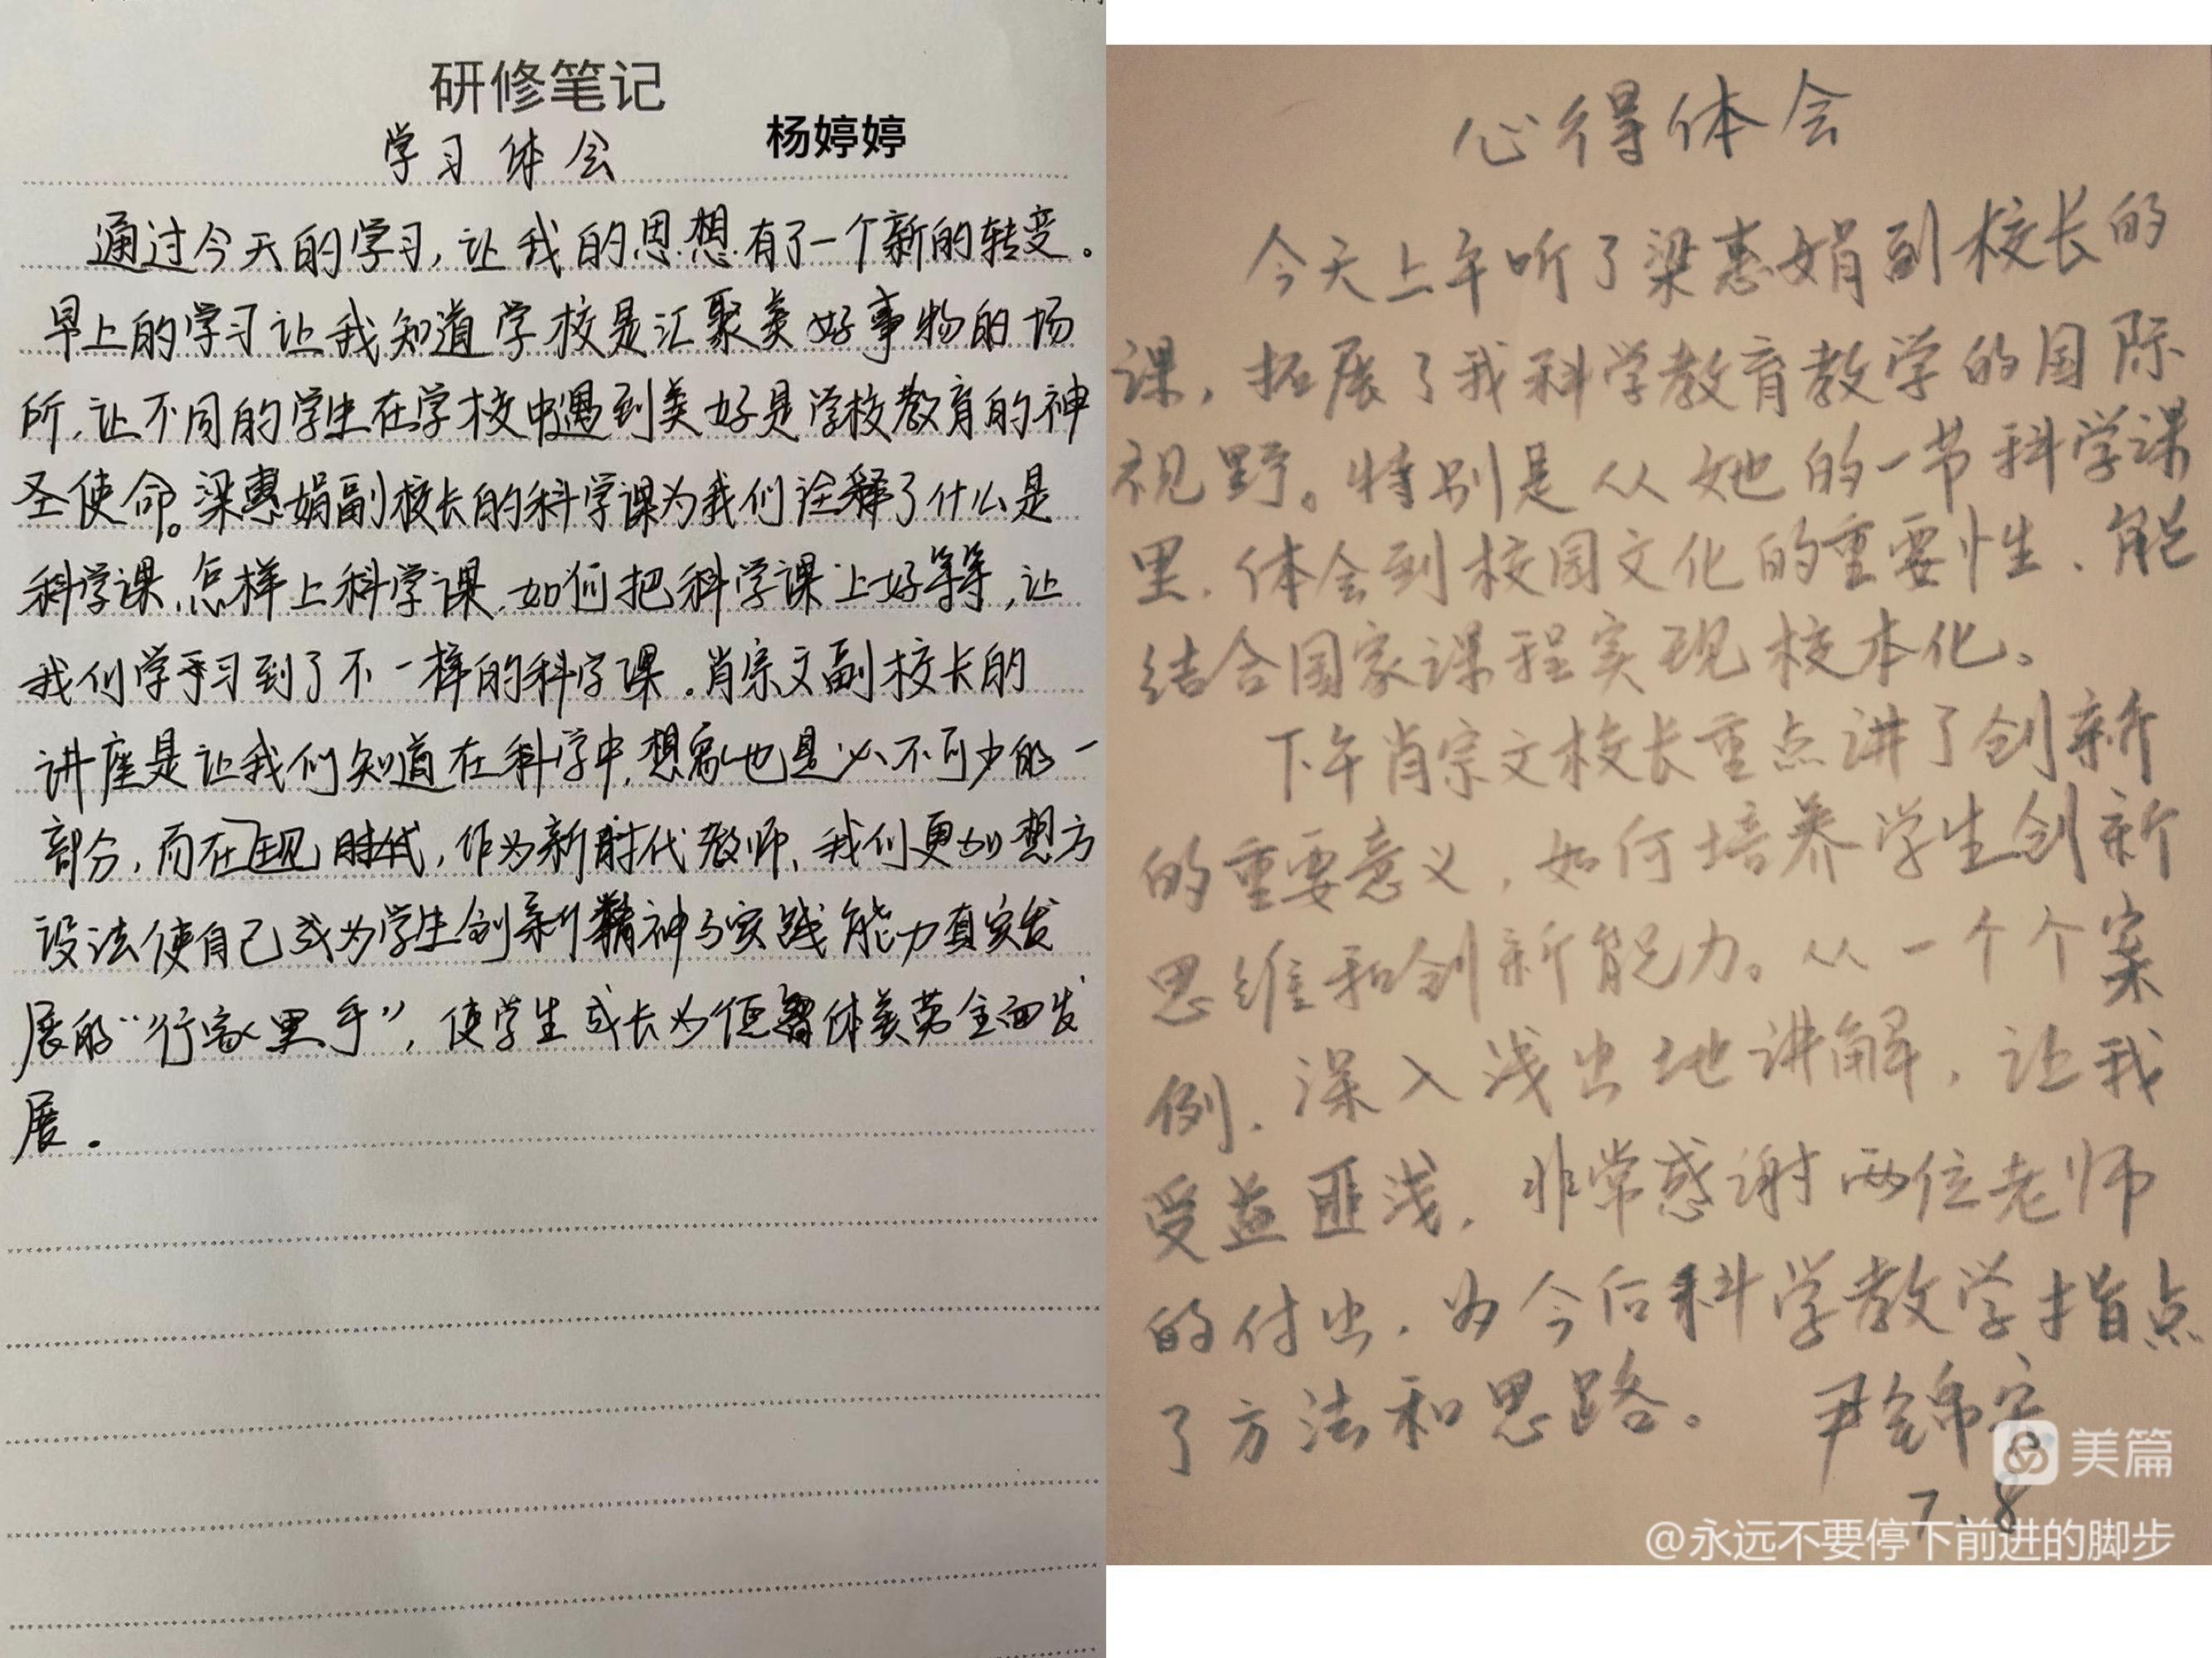 研修笔记
学习体会
杨婷婷
通过今天的学习,让我的思想有了一个新的转变。
早上的学习让我知道学校是汇聚美好事物的场
所,让不同的学生在学校中遇到美好是学校教育的神
圣使命。梁惠娟副校长的科学课为我们诠释了什么是
科学课、怎样上科学课、如何把科学课上好等等,让
我们学习到了不一样的科学课。肖宗文副校长的
讲座是让我们知道在科学中,想象也是必不可少的一
部分,而在现时代,作为新时代教师、我们更加想方
设法使自己成为学生创新精神与实践能力真实发
展的“行家里手”,使学生成长为德智体美劳全面发
展。
心得体会
今天上午听了梁惠娟副校长的
课,拓展了我科学教育教学的国际
视野。特别是从她的一节科学课
里,体会到校园文化的重要性、能
结合国家课程实现校本化。
下午肖宗文校长重点讲了创新
的重要意义,如何培养学生创新
思维和创新能力。从一个个案
例、深入浅出地讲解,让我
受益匪浅,非常感谢两位老师
的付出,为今后科学教学指点
了方法和思路。
尹锦
7.8
美篇
@永远不要停下前进的脚步